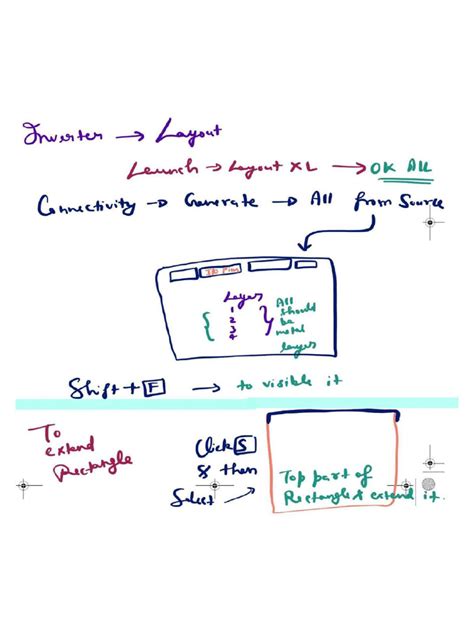 Inverter → Layout
Launch → Layout XL → OK All
Connectivity → Generate → All from Source
I/O Pins
Layer
1
2
3
4
All should be metal layers
Shift + F → to visible it
To extend Rectangle
Click S & then Select →
Top part of Rectangle & extend it.